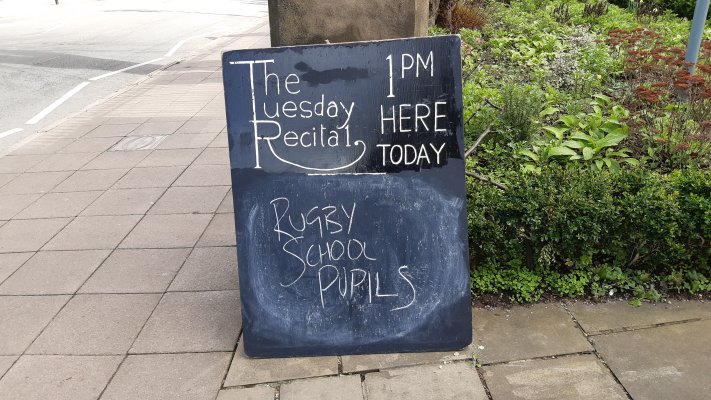 The
Tuesday
Recital
1PM
HERE
TODAY
RUGBY
SCHOOL
PUPILS